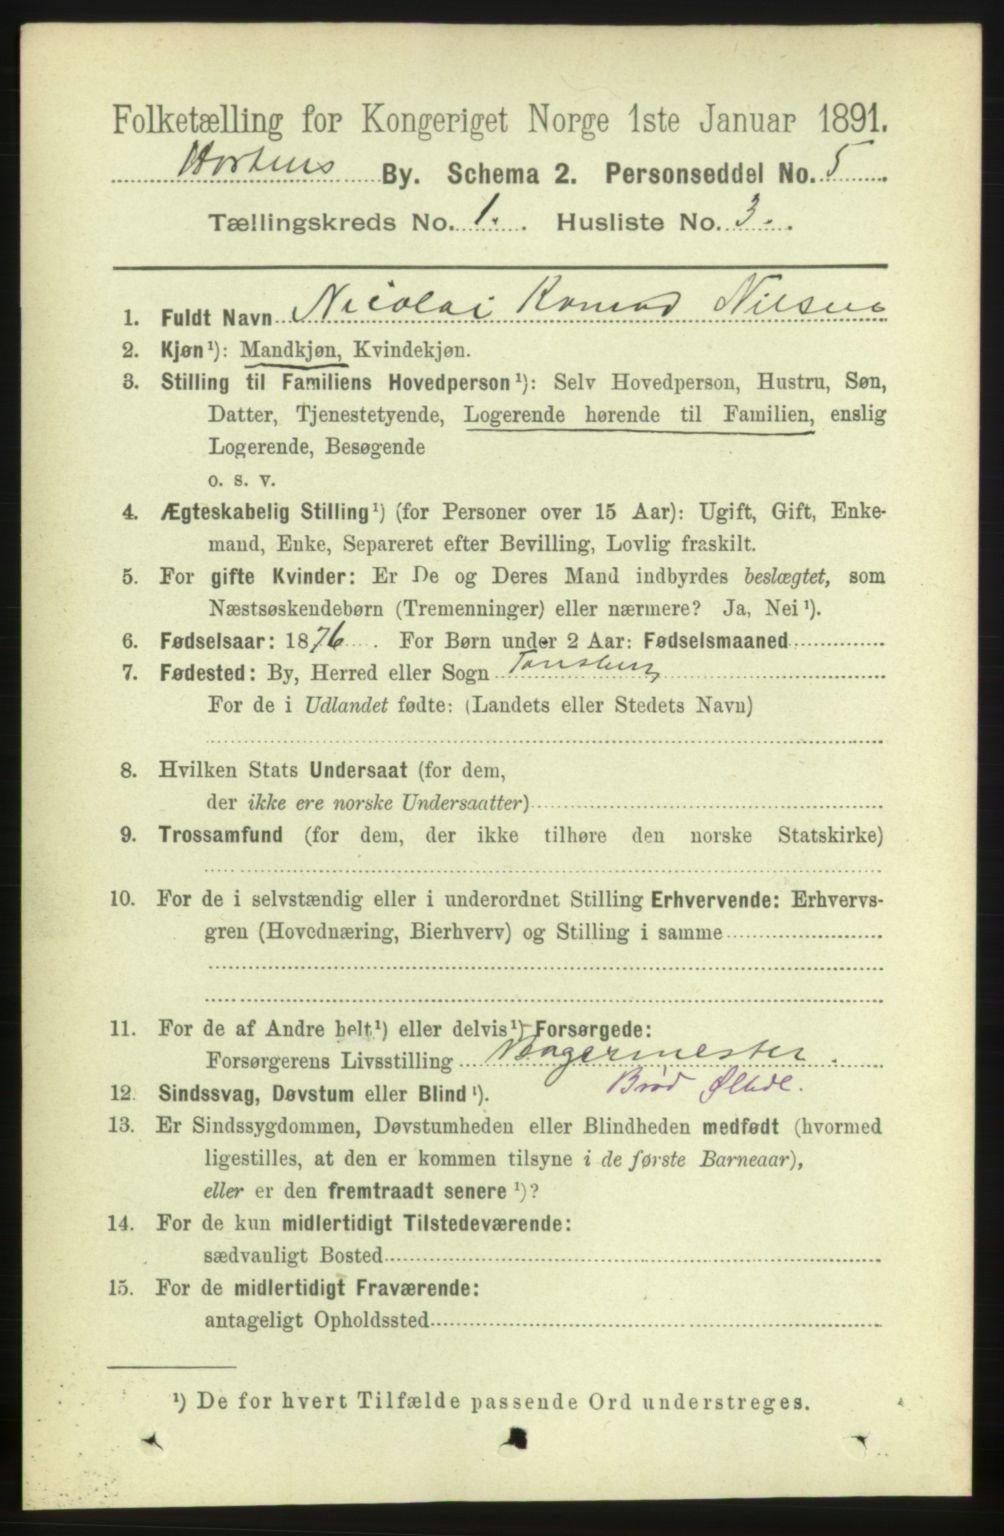 Folketælling for Kongeriget Norge 1ste Januar 1891.
Hortens By. Schema 2. Personseddel No. 5
Tællingskreds No. 1. Husliste No. 3.
1. Fuldt Navn Nicolai Konrad Nilsen
2. Kjøn¹): Mandkjøn, Kvindekjøn.
3. Stilling til Familiens Hovedperson¹): Selv Hovedperson, Hustru, Søn,
Datter, Tjenestetyende, Logerende hørende til Familien, enslig
Logerende, Besøgende
o. s. v.
4. Ægteskabelig Stilling¹) (for Personer over 15 Aar): Ugift, Gift, Enke-
mand, Enke, Separeret efter Bevilling, Lovlig fraskilt.
5. For gifte Kvinder: Er De og Deres Mand indbyrdes beslægtet, som
Næstsøskendebørn (Tremenninger) eller nærmere? Ja, Nei¹).
6. Fødselsaar: 1876. For Børn under 2 Aar: Fødselsmaaned
7. Fødested: By, Herred eller Sogn Tønsberg
For de i Udlandet fødte: (Landets eller Stedets Navn)
8. Hvilken Stats Undersaat (for dem,
der ikke ere norske Undersaatter)
9. Trossamfund (for dem, der ikke tilhøre den norske Statskirke)
10. For de i selvstændig eller i underordnet Stilling Erhvervende: Erhvervs-
gren (Hovednæring, Bierhverv) og Stilling i samme
11. For de af Andre helt¹) eller delvis¹) Forsørgede:
Forsørgerens Livsstilling Bagermester.
Brød
12. Sindssvag, Døvstum eller Blind¹).
13. Er Sindssygdommen, Døvstumheden eller Blindheden medfødt (hvormed
ligestilles, at den er kommen tilsyne i de første Barneaar),
eller er den fremtraadt senere¹)?
14. For de kun midlertidigt Tilstedeværende:
sædvanligt Bosted
15. For de midlertidigt Fraværende:
antageligt Opholdssted
¹) De for hvert Tilfælde passende Ord understreges.